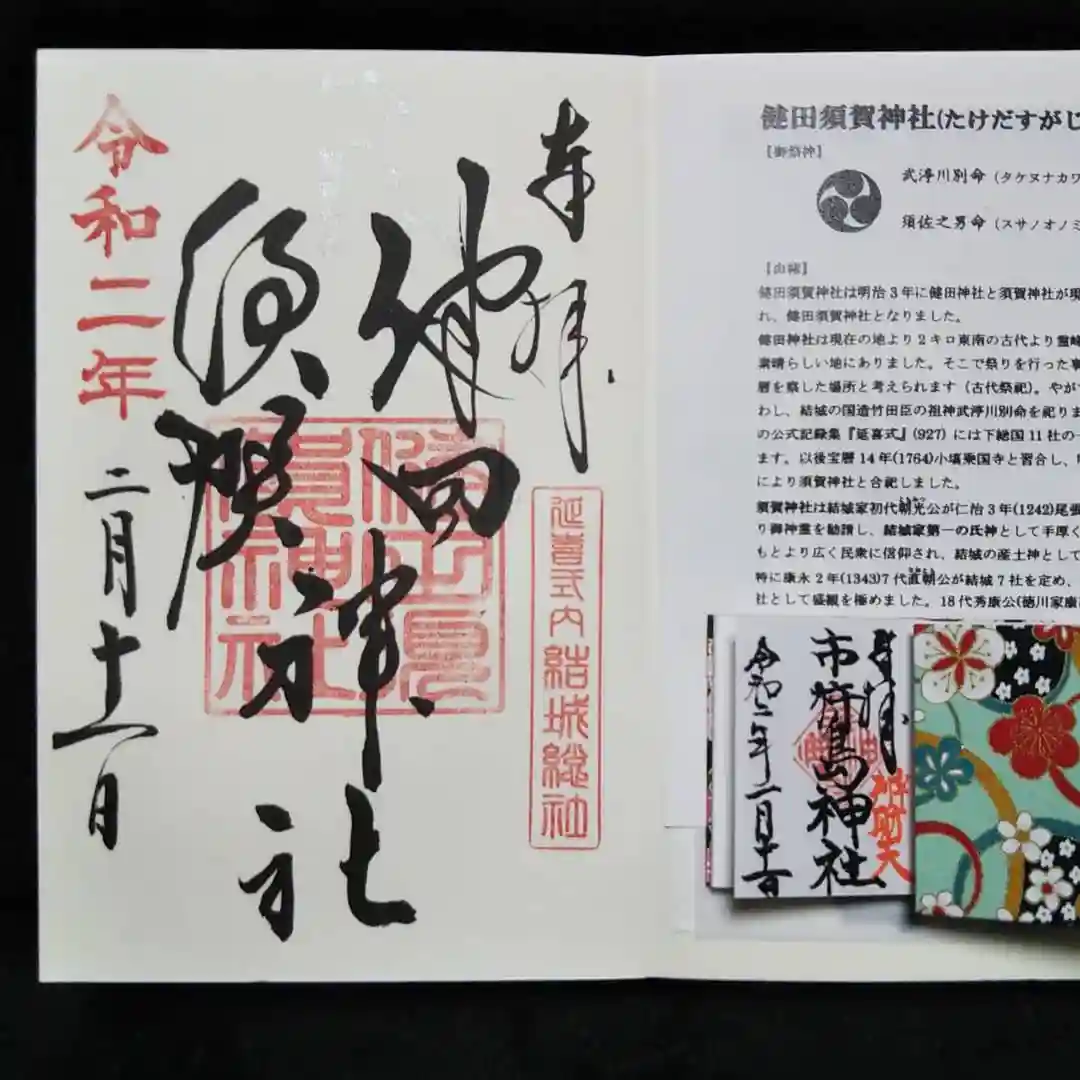 奉拝
健田
須賀神社
神社
令和二年
二月十一日
健田須賀神社
延喜式内 結城総社
健田須賀神社(たけだすがじ
【御祭神】
武渟川別命 (タケヌナカワ
須佐之男命 (スサノオノミ
【由緒】
健田須賀神社は明治3年に健田神社と須賀神社が現
れ、健田須賀神社となりました。
健田神社は現在の地より2キロ東南の古代より霊峰
素晴らしい地にありました。そこで祭りを行った事
暦を察した場所と考えられます (古代祭祀)。やが
わし、結城の国造竹田臣の祖神武渟川別命を祀りま
の公式記録集『延喜式』(927) には下総国11社の一
ます。以後宝暦14年(1764)小塙乗国寺と習合し、
により須賀神社と合祀しました。
須賀神社は結城家初代朝光公が仁治3年(1242)尾張
り御神霊を勧請し、結城家第一の氏神として手厚く
もとより広く民衆に信仰され、結城の産土神として
特に康永2年(1343)7代直朝公が結城7社を定め、
社として盛観を極めました。18代秀康公(徳川家康
奉拝
市杵島神社
令和二年二月十一日
弁財天